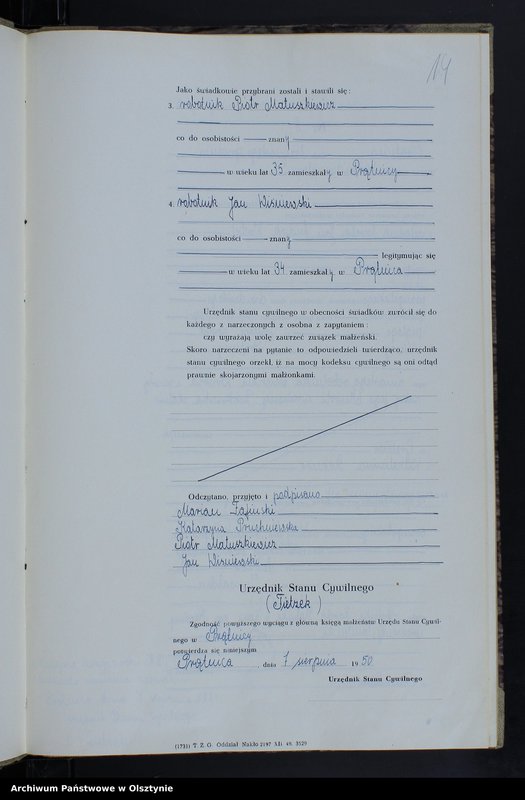 14
Jako świadkowie przybrani zostali i stawili się:
3. robotnik Piotr Matuszkiewicz
co do osobistości znany
w wieku lat 35 zamieszkały w Prątnicy
4. robotnik Jan Wiśniewski
co do osobistości znany
legitymując się
w wieku lat 34 zamieszkały w Prątnica
Urzędnik stanu cywilnego w obecności świadków zwrócił się do
każdego z narzeczonych z osobna z zapytaniem:
czy wyrażają wolę zawrzeć związek małżeński.
Skoro narzeczeni na pytanie to odpowiedzieli twierdząco, urzędnik
stanu cywilnego orzekł, iż na mocy kodeksu cywilnego są oni odtąd
prawnie skojarzonymi małżonkami.
Odczytano, przyjęto i podpisano
Marian
Katarzyna
Piotr Matuszkiewicz
Jan Wiśniewski
Urzędnik Stanu Cywilnego
Zgodność powyższego wyciągu z główną księgą małżeństw Urzędu Stanu Cywil-
nego w Prątnicy
potwierdza się niniejszym
Prątnica, dnia 7 sierpnia 1950
Urzędnik Stanu Cywilnego
(1731) T. Z. G. Oddział Nakło 2197 XI. 49. 3529
Archiwum Państwowe w Olsztynie